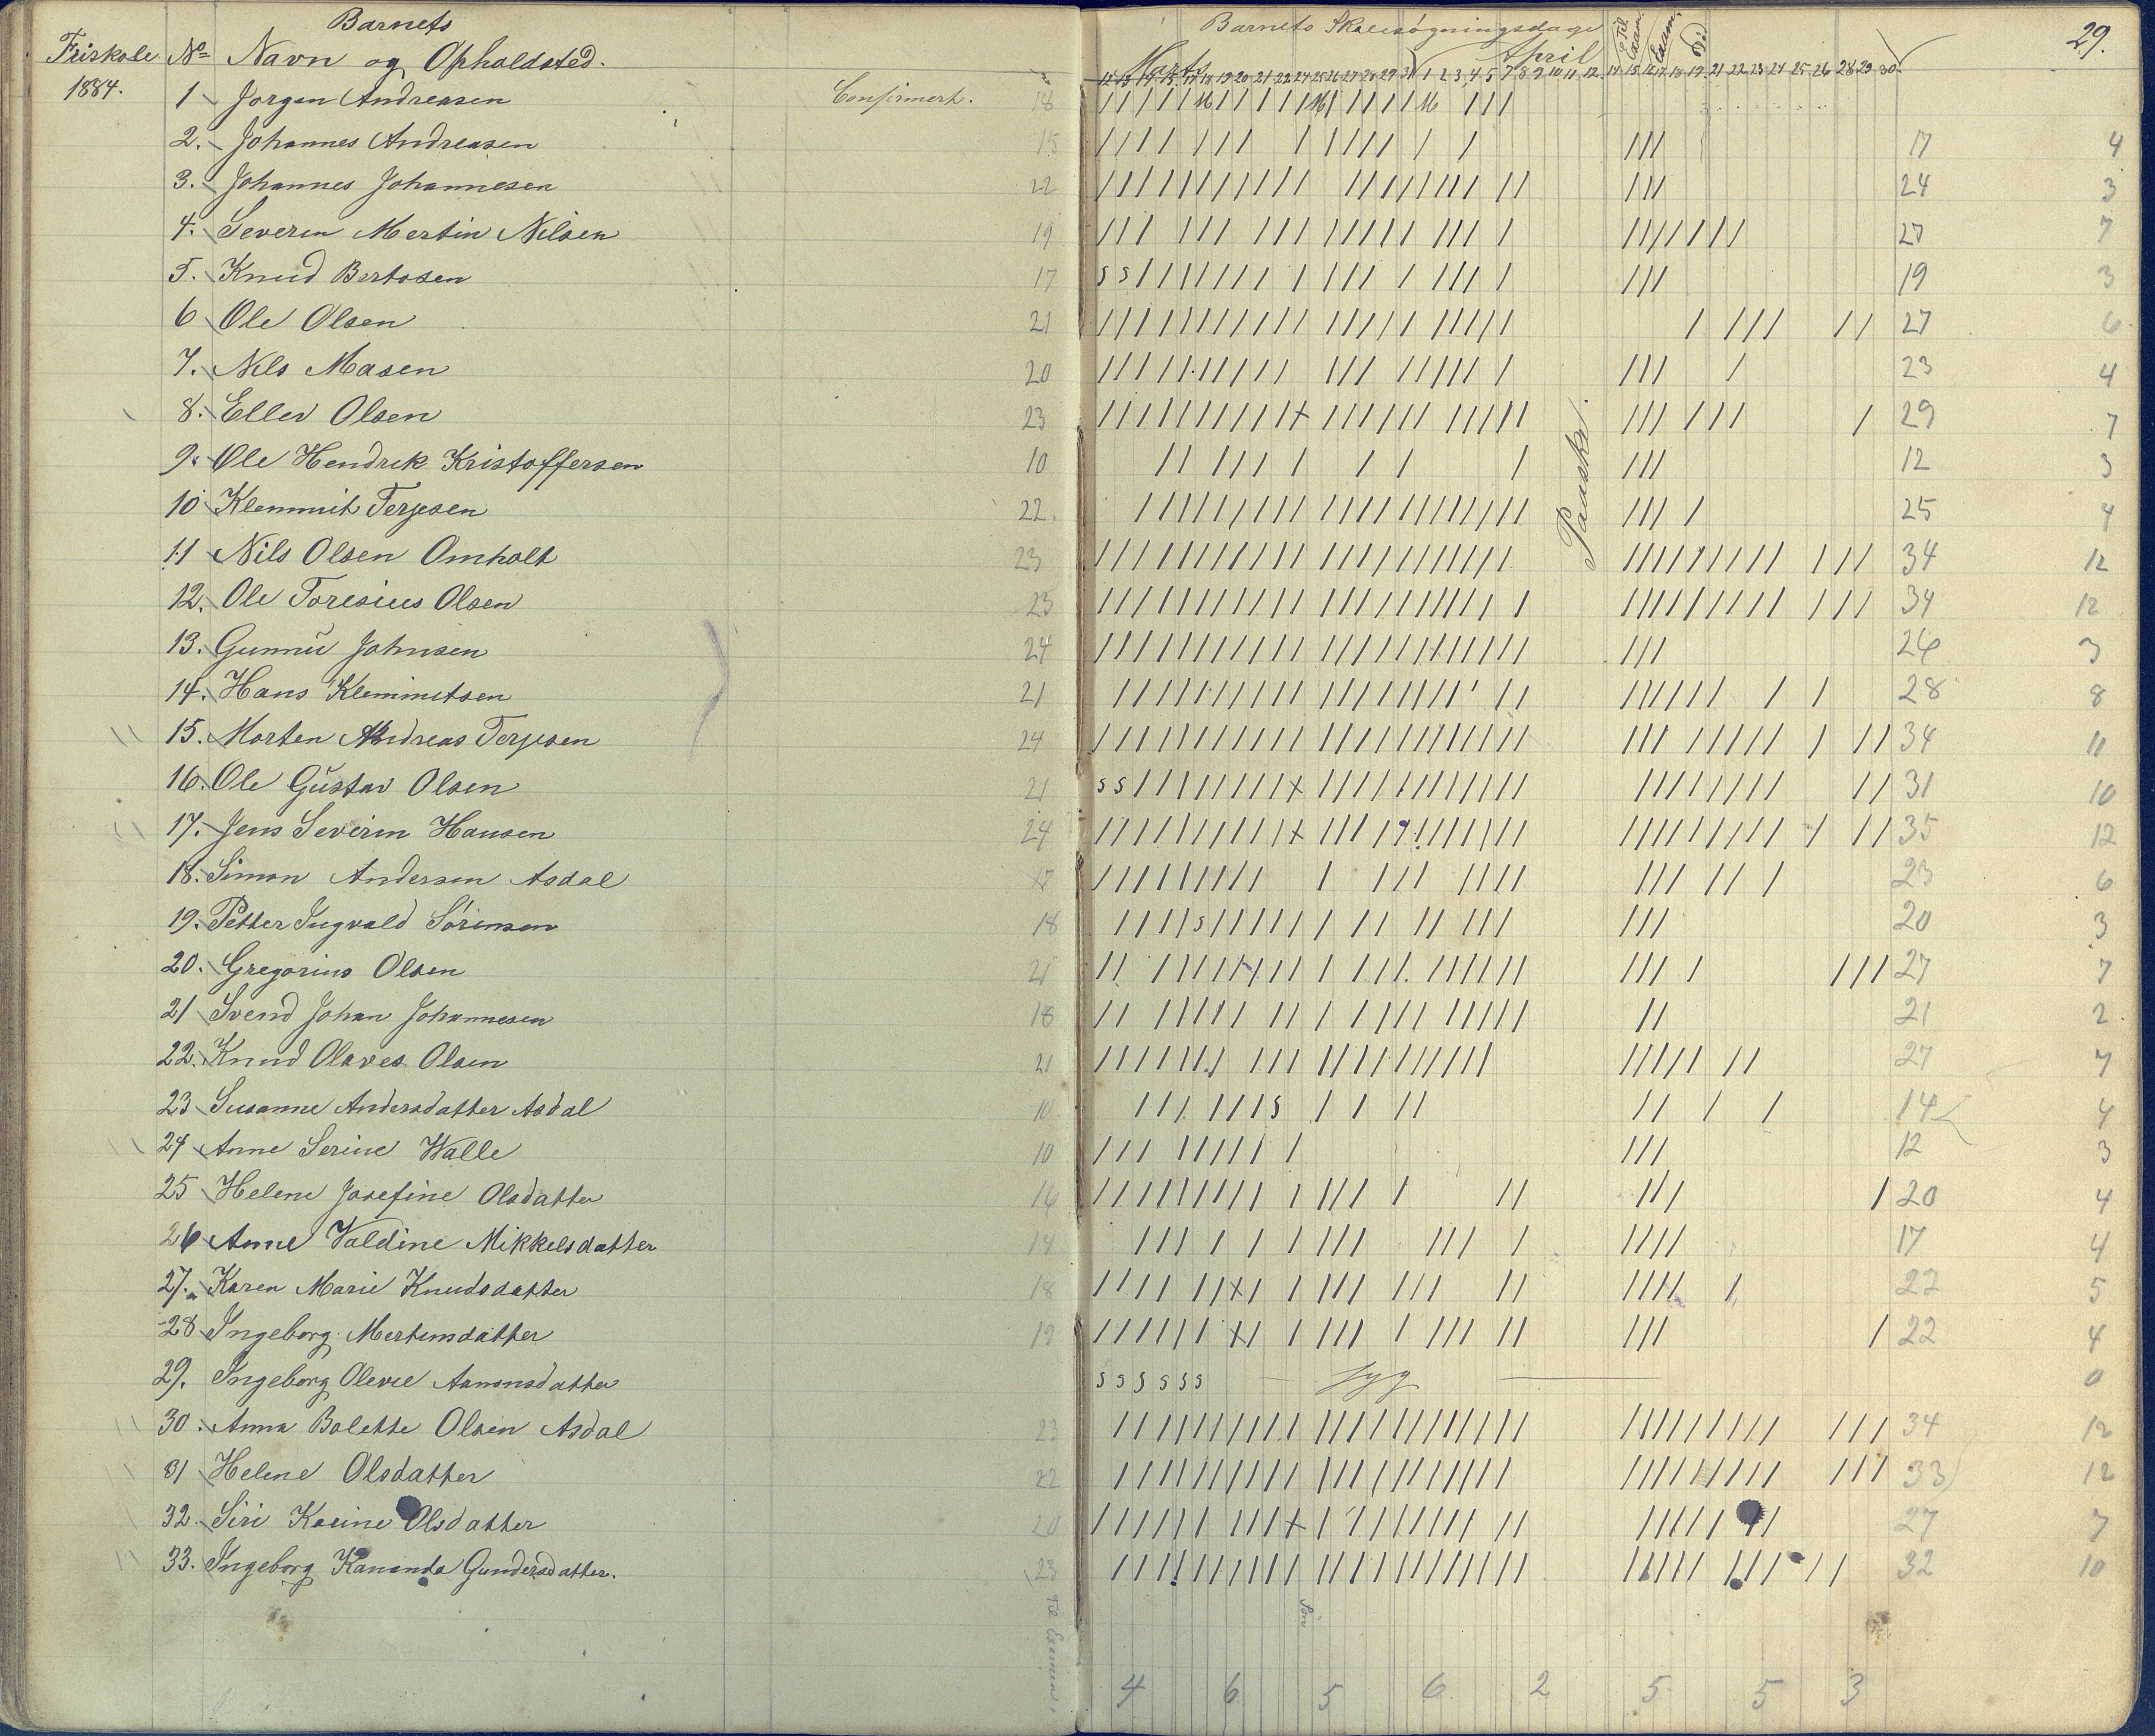 Barnets
Friskole No Navn og Opholdsted.
1884.
1 Jorgen Andreasen Confirmert. 18
2. Johannes Andreasen 15
3. Johannes Johannesen 22
4. Severin Mertin Nilsen 19
5. Knud Bertosen 17
6 Ole Olsen 21
7. Nils Masen 20
8. Ellev Olsen 23
9. Ole Hendrek Kristoffersen 10
10 Klemmit Terjesen 22.
11 Nils Olsen Omholt 23
12. Ole Toresius Olsen 23
13. Gunnu Johnsen 24
14. Hans Klemmetsen 21
15. Morten Andreas Terjesen 24
16. Ole Gustav Olsen 21
17. Jens Severin Hansen 24
18. Simon Andersen Asdal 17
19. Petter Ingvald Sörensen 18
20. Gregorius Olsen 21
21 Svend Johan Johannesen 18
22. Knud Olaves Olsen 21
23 Susanne Andersdatter Asdal 10
24 Anne Serine Walle 10
25 Helene Josefine Olsdatter 16
26 Anne Valdine Mikkelsdatter 14
27. Karen Marie Knudsdatter 18
28 Ingeborg Mertinsdatter 19
29. Ingeborg Olevie Aanonsdatter
30. Anna Bolette Olsen Asdal 23
31 Helene Olsdatter 22
32. Siri Karine Olsdatter 20
33. Ingeborg Kananda Gundersdatter. 23
Til Examen
Barnets Skolesögningsdage 29.
Marts April
12 13 14 15 17 18 19 20 21 22 24 25 26 27 28 29 31 1 2 3 4 5 7 8 9 10 11 12 14 15 16 17 18 19 21 22 23 24 25 26 28 29 30
Til Exam. Exam.
17 4
24 3
27 7
s s 19 3
27 6
23 4
29 7
12 3
25 4
34 12
34 12
26 3
28 8
34 11
s s 31 10
35 12
23 6
s 20 3
27 7
21 2
27 7
s 14 4
12 3
20 4
17 4
22 5
22 4
s s s s s s syg 0
34 12
33 12
27 7
32 10
Paaske.
4 6 5 6 2 5 5 3